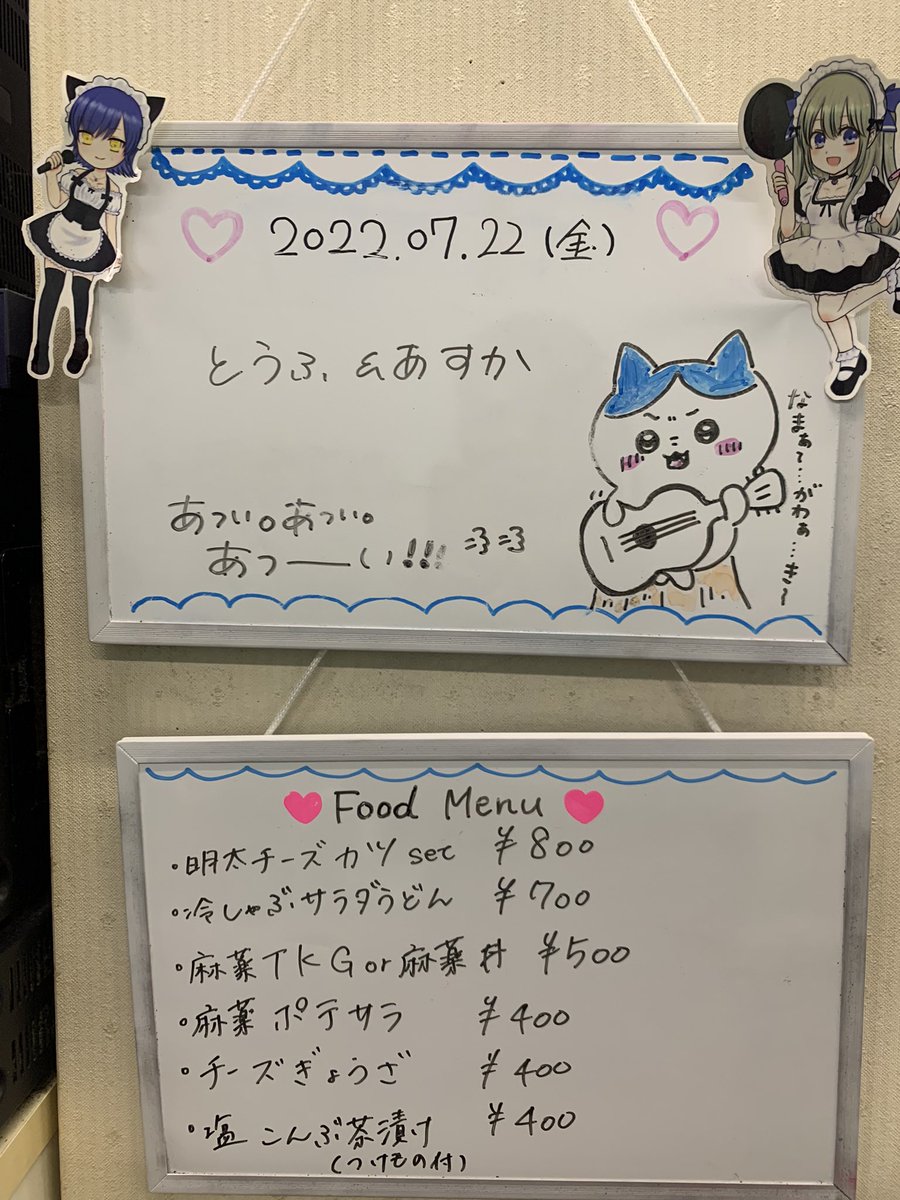 2022.07.22(金)
とうふ&あすか
なまぁ〜…がわぁ…き〜
あつい。あつい。
あつーい!!!
Food Menu
・明太チーズカツset ¥800
・冷しゃぶサラダうどん ¥700
・麻薬TKGor麻薬丼 ¥500
・麻薬ポテサラ ¥400
・チーズぎょうざ ¥400
・塩こんぶ茶漬け ¥400
(つけもの付)